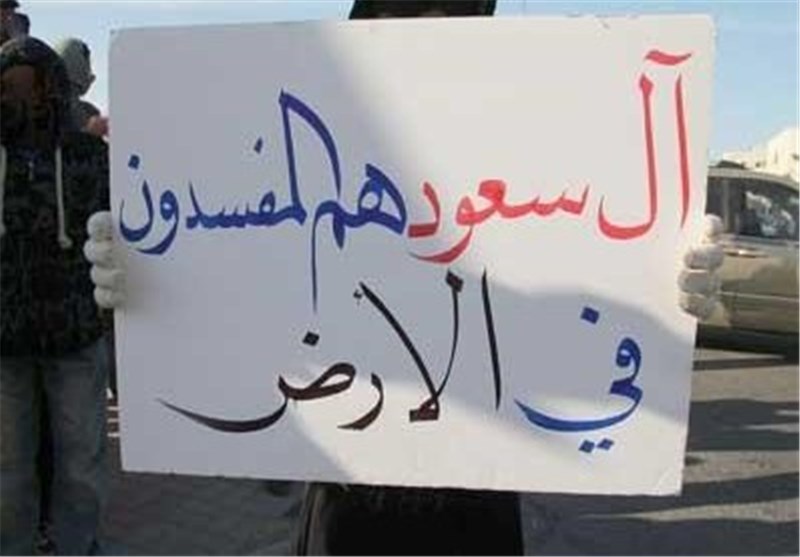 آل سعود هم المفسدون
في الأرض